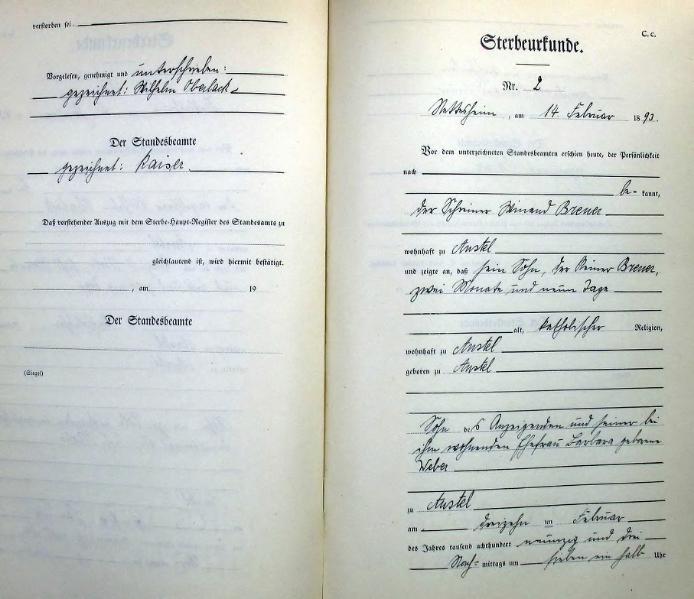 verstorben sei.
Vorgelesen, genehmigt und unterschrieben:
gezeichnet: Wilhelm Oberlack
Der Standesbeamte
gezeichnet: Kaiser
Daß vorstehender Auszug mit dem Sterbe-Haupt-Register des Standesamts zu
gleichlautend ist, wird hiermit bestätigt.
, am 19
Der Standesbeamte
(Siegel)
C. c.
Sterbeurkunde.
Nr. 2
Nettesheim, am 14 Februar 1893.
Vor dem unterzeichneten Standesbeamten erschien heute, der Persönlichkeit
nach
be- kannt,
der Schreiner Winand Breuer
wohnhaft zu Anstel
und zeigte an, daß sein Sohn, der Reiner Breuer,
zwei Monate und neun Tage
alt, katholischer Religion,
wohnhaft zu Anstel
geboren zu Anstel
Sohn des Anzeigenden und seiner bei
ihm wohnenden Ehefrau Barbara geborene
Weber
zu Anstel
am dreizehn ten Februar
des Jahres tausend achthundert neunzig und drei
Nach- mittags um sieben ein halb Uhr